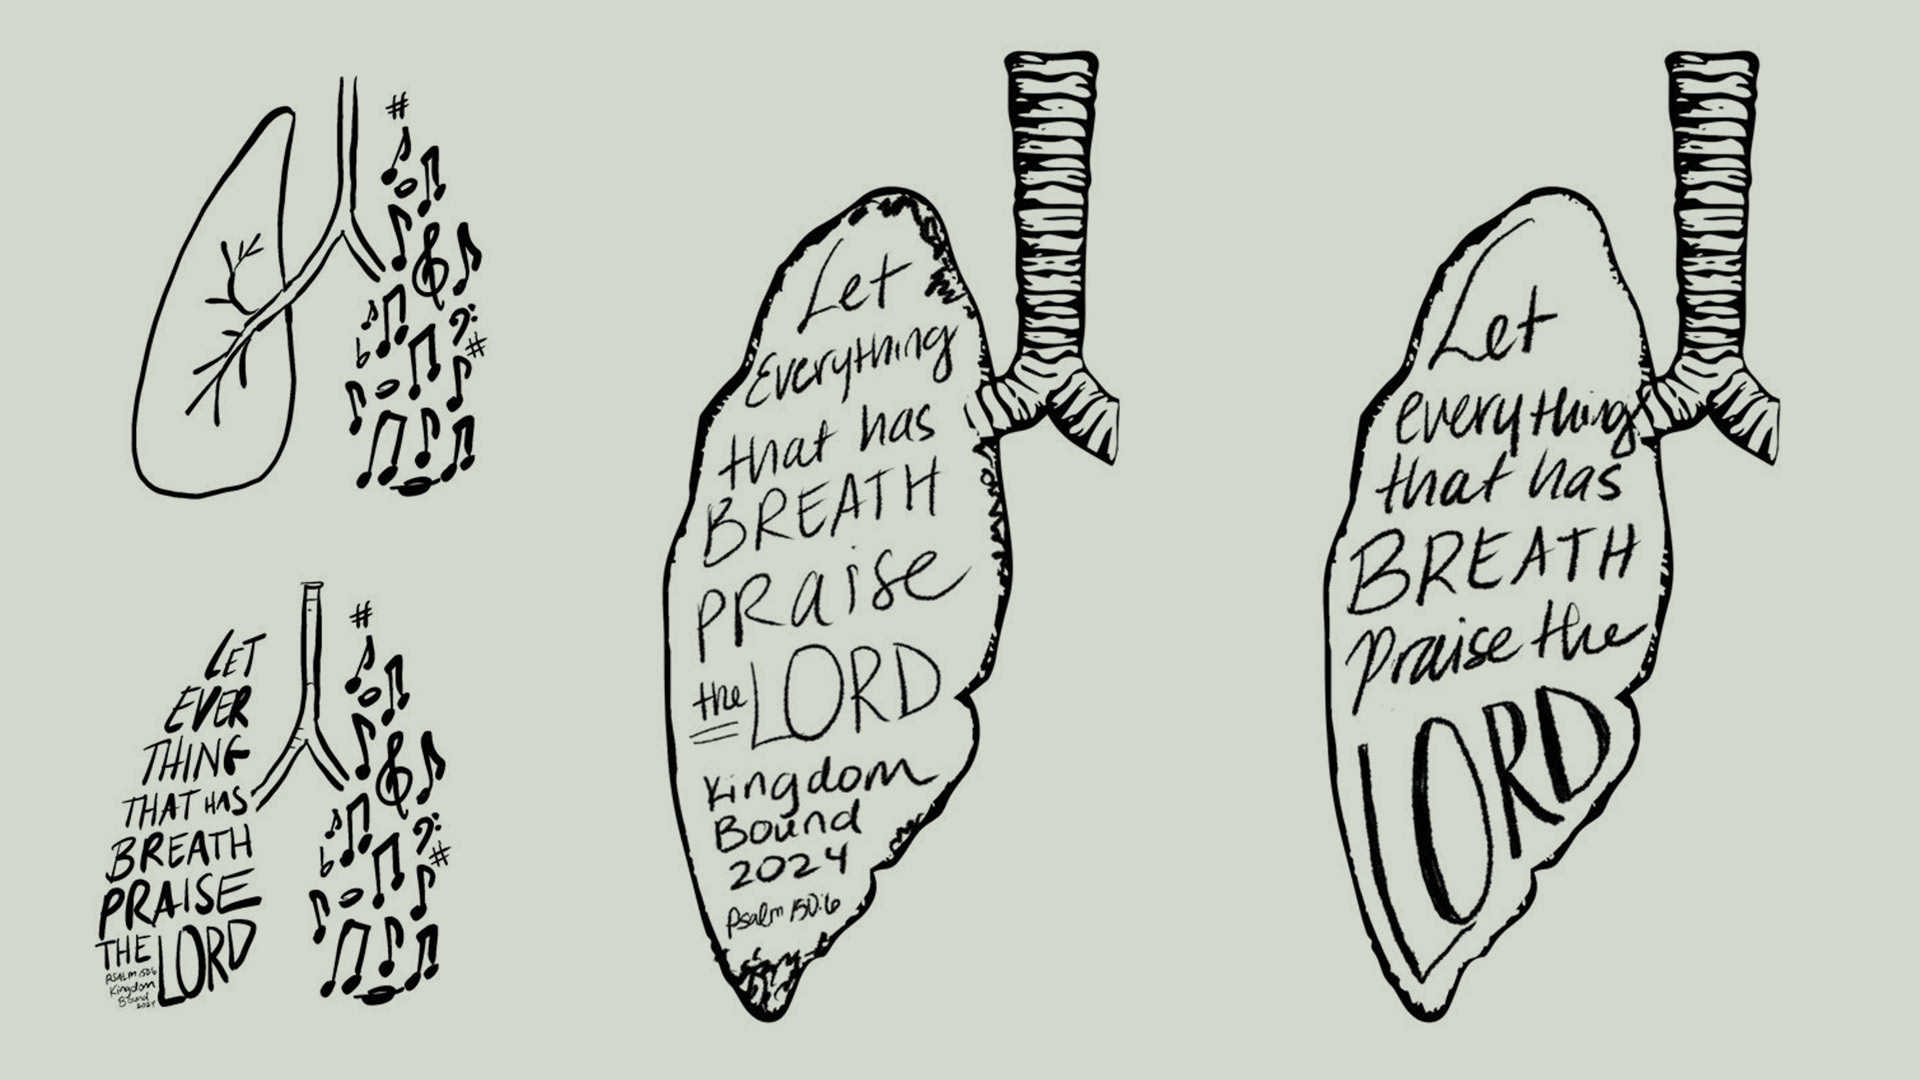 LET
EVER
THING
THAT HAS
BREATH
PRAISE
THE LORD
PSALM 150:6
Kingdom
Bound
2024
Let
Everything
that has
BREATH
PRaise
the LORD
Kingdom
Bound
2024
Psalm 150:6
Let
everything
that has
BREATH
praise the
LORD